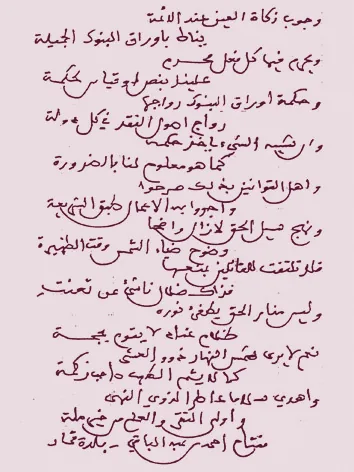 وجوب زكاة العين عند الأئمة
يناط باوراق البنوك الجميلة
ويحرم فيها كل فعل محرم
علينا بنص او قياس لحكمة
وحكمة أوراق البنوك رواجها
رواج اصول النقد في كل دولة
وان شبيه الشيء ياخذ حكمه
كما هو معلوم لنا بالضرورة
واهل القوانين بذلك صرحوا
واجروا به الاعمال طبق الشريعة
ونهج سبيل الحق لازال واضحا
وضوح ضياء الشمس وقت الظهيرة
فلا تلتفت للقائلين بنفيها
فذاك ضلال ناشئ عن تعنت
وليس منار الحق يطفئ نوره
ظلام عناد لا يقوم بحجة
نعم لا يرى شمس النهار ذوو العشى
كما لا يشم الطيب
واهدي سلاما عاطرا لذوي النهى
وأولي التقى والعلم من خير ملة
احمد بن عبد الباقي - بلدة